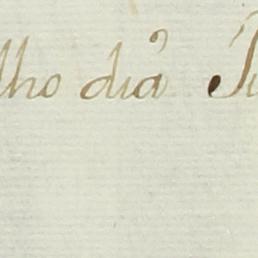 lho dià